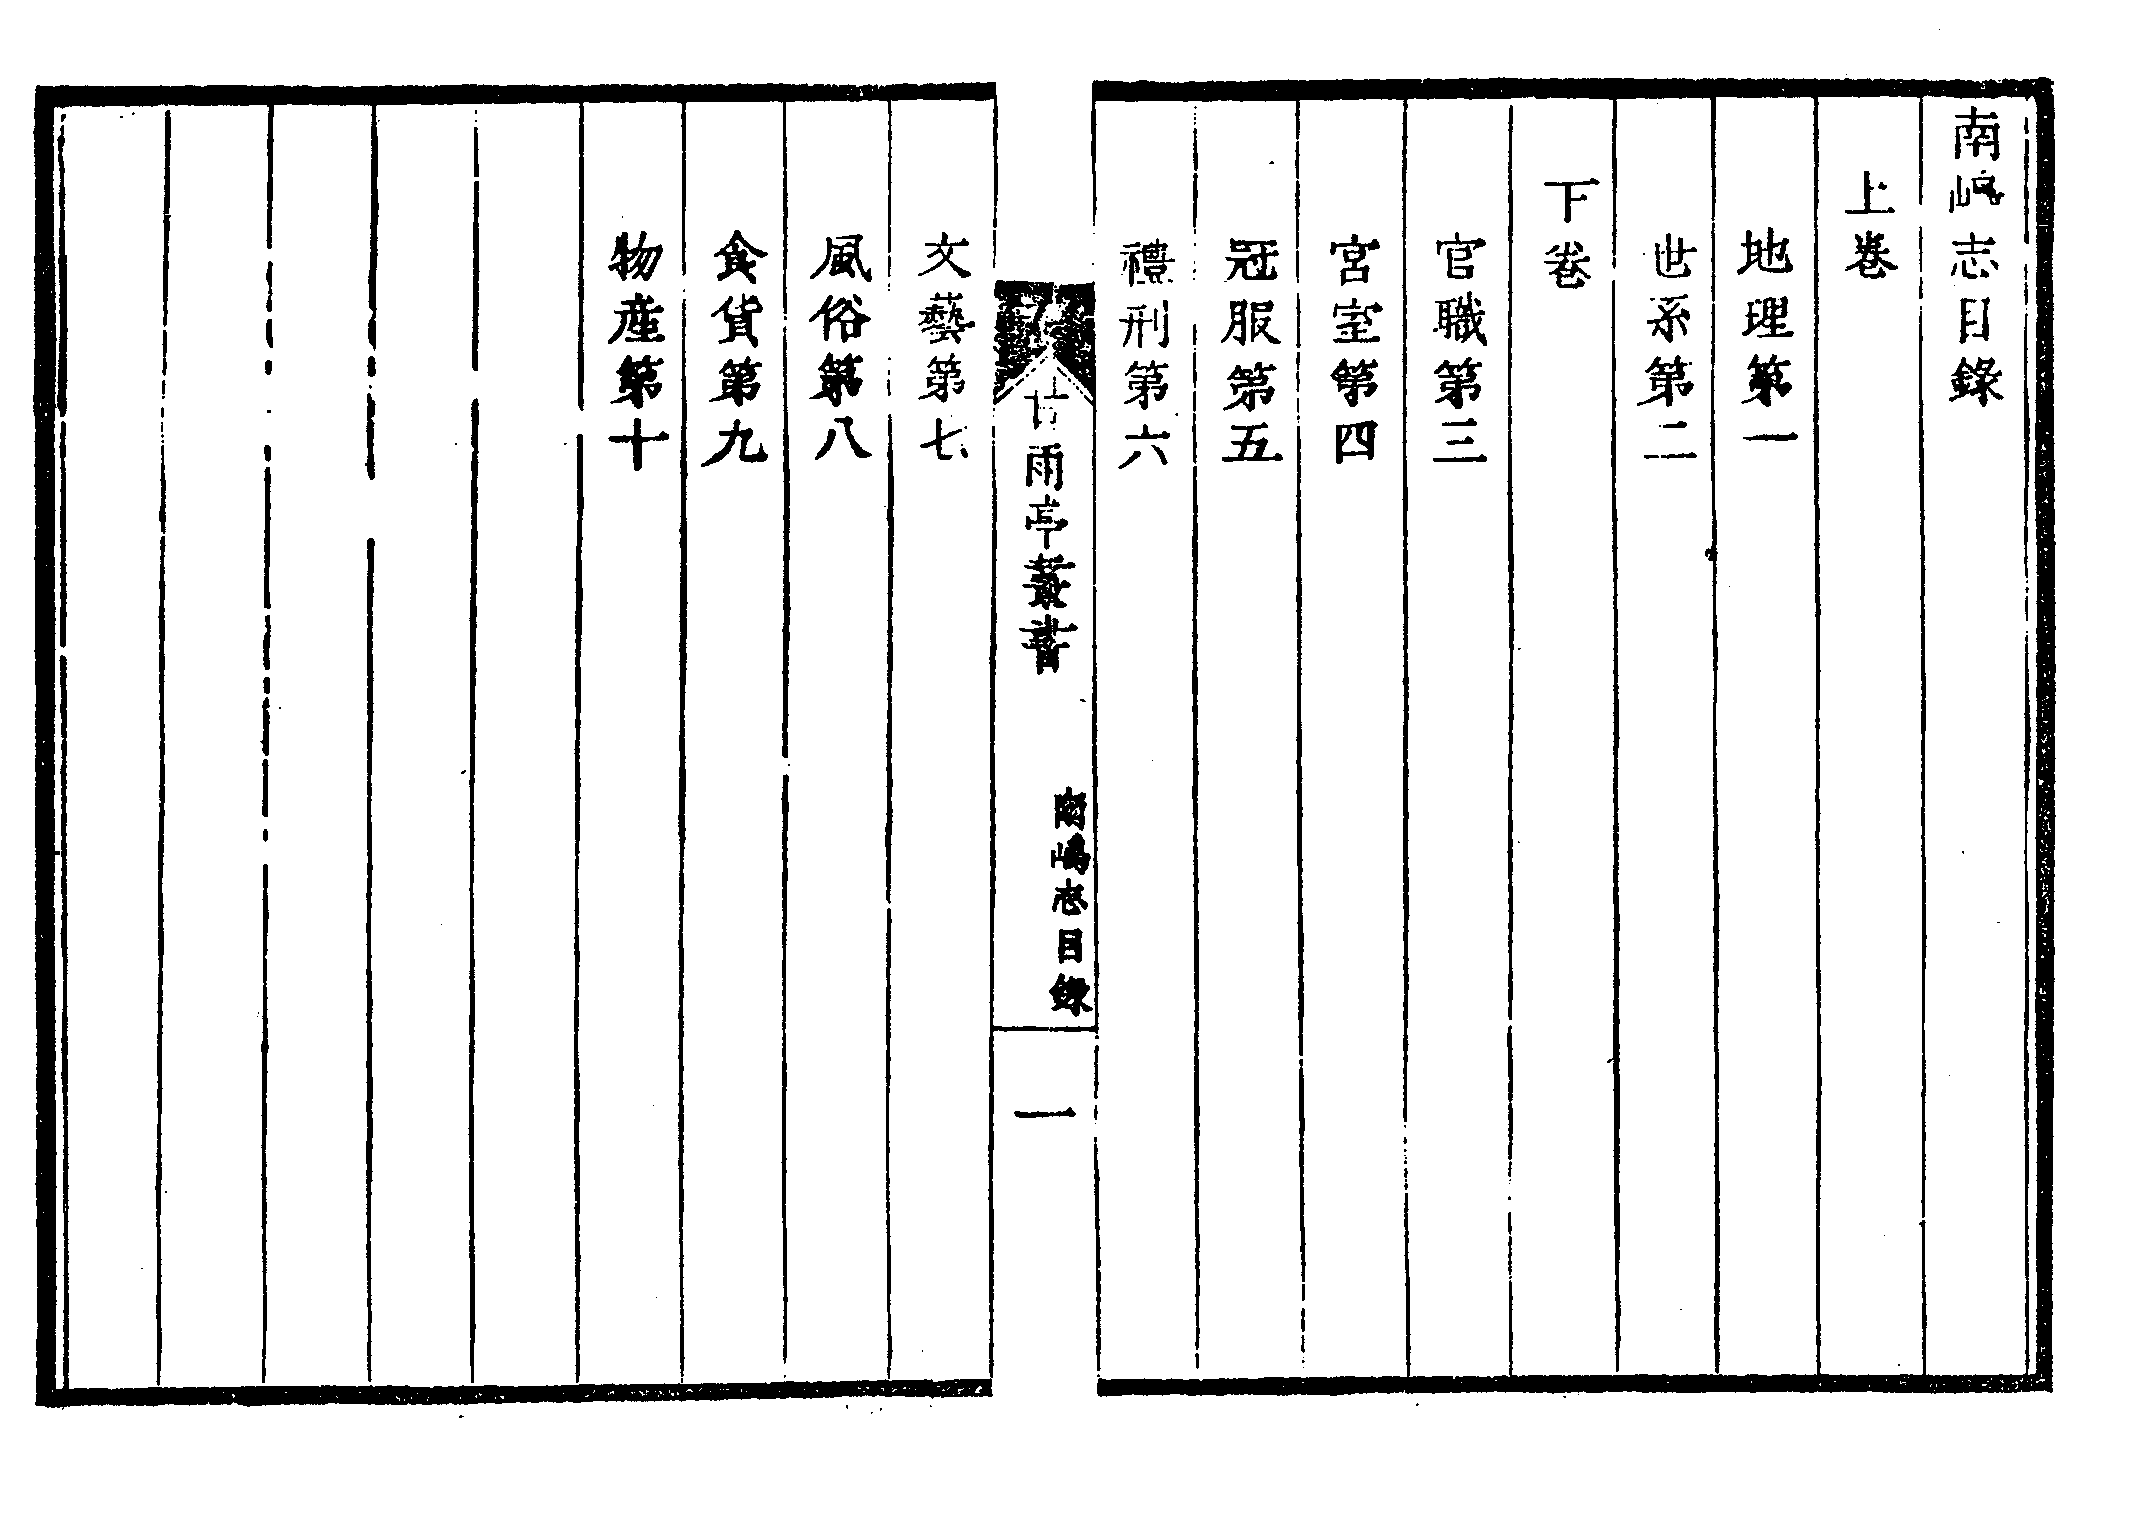 南嶋志目錄
上卷
地理第一
世系第二
下卷
官職第三
宮室第四
冠服第五
禮刑第六
甘雨亭叢書
南嶋志目錄
一
文藝第七
風俗第八
食貨第九
物産第十